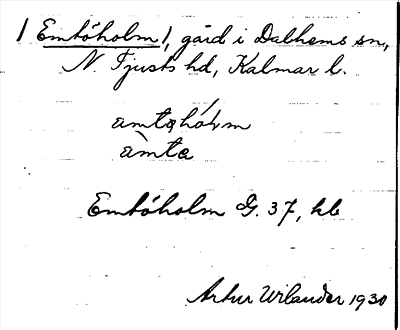 / Emtöholm /, gård i Dalhems sn,
N. Tjusts hd, Kalmar l.
àmtahólm
àmta
Emtöholm G. 37, kb
Artur Wilander 1930